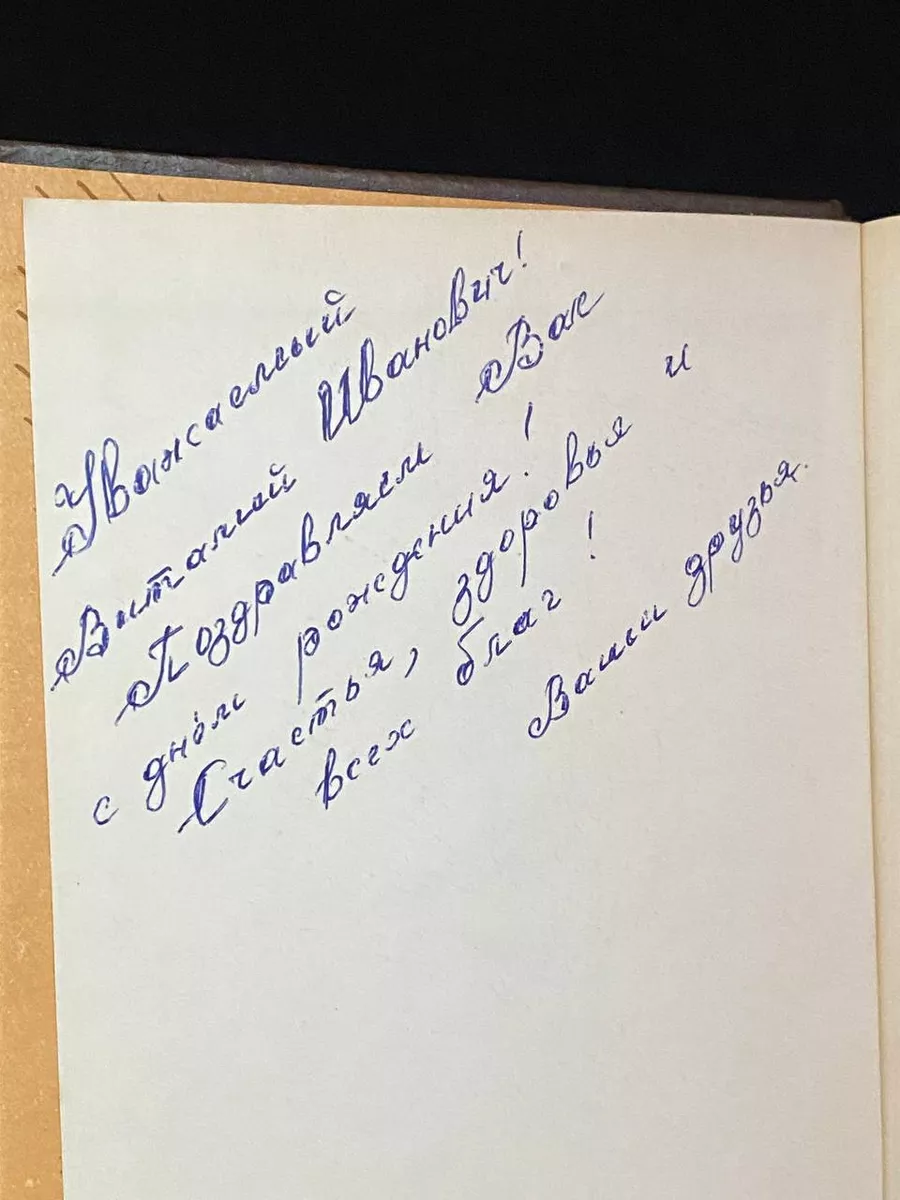 Уважаемый
Виталий Иванович!
Поздравляем Вас
с днём рождения!
Счастья, здоровья и
всех благ!
Ваши друзья.